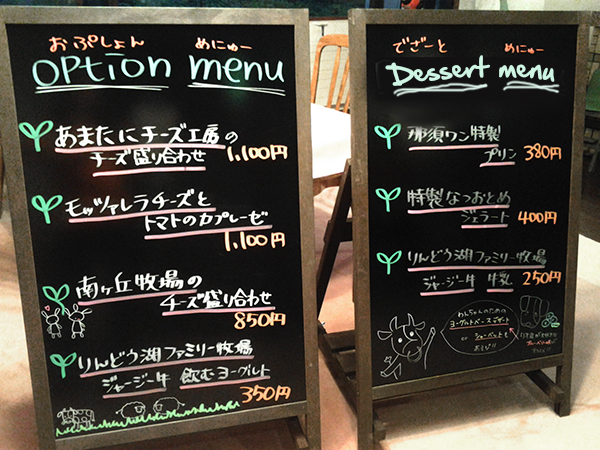 おぷしょん めにゅー
option menu
あまたにチーズ工房の
チーズ盛り合わせ 1,100円
モッツァレラチーズと
トマトのカプレーゼ
1,100円
南ヶ丘牧場の
チーズ盛り合わせ
850円
りんどう湖ファミリー牧場
ジャージー牛 飲むヨーグルト
350円
でざーと めにゅー
Dessert menu
那須ワン特製
プリン 380円
特製なつおとめ
ジェラート 400円
りんどう湖ファミリー牧場
ジャージー牛 250円
わんちゃんのための
ヨーグルトベースデザート
or シャーベットも
あるよ!!